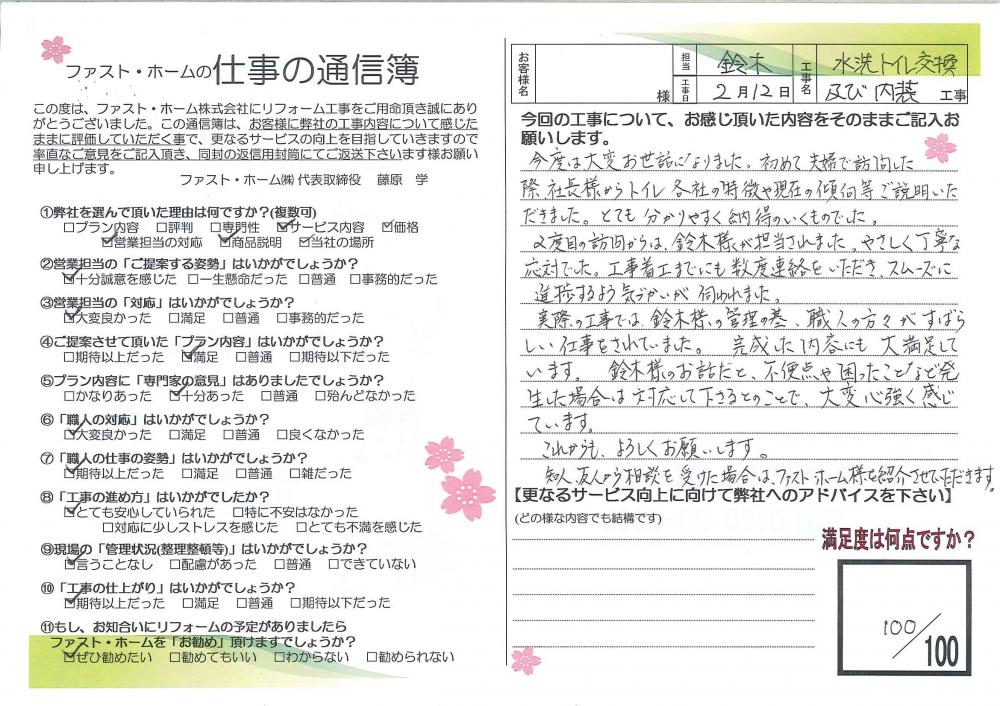 ファスト・ホームの仕事の通信簿
この度は、ファスト・ホーム株式会社にリフォーム工事をご用命頂き誠にあり
がとうございました。この通信簿は、お客様に弊社の工事内容について感じた
ままに評価していただく事で、更なるサービスの向上を目指していきますので
率直なご意見をご記入頂き、同封の返信用封筒にてご返送下さいます様お願い
申し上げます。
ファスト・ホーム㈱ 代表取締役 藤原 学
①弊社を選んで頂いた理由は何ですか?(複数可)
□プラン内容 □評判 □専門性 ☑サービス内容 ☑価格
☑営業担当の対応 ☑商品説明 ☑当社の場所
②営業担当の「ご提案する姿勢」はいかがでしょうか?
☑十分誠意を感じた □一生懸命だった □普通 □事務的だった
③営業担当の「対応」はいかがでしょうか?
☑大変良かった □満足 □普通 □事務的だった
④ご提案させて頂いた「プラン内容」はいかがでしょうか?
□期待以上だった ☑満足 □普通 □期待以下だった
⑤プラン内容に「専門家の意見」はありましたでしょうか?
□かなりあった ☑十分あった □普通 □殆んどなかった
⑥「職人の対応」はいかがでしょうか?
☑大変良かった □満足 □普通 □良くなかった
⑦「職人の仕事の姿勢」はいかがでしょうか?
☑期待以上だった □満足 □普通 □雑だった
⑧「工事の進め方」はいかがでしたか?
☑とても安心していられた □特に不安はなかった
□対応に少しストレスを感じた □とても不満を感じた
⑨現場の「管理状況(整理整頓等)」はいかがでしょうか?
☑言うことなし □配慮があった □普通 □できていない
⑩「工事の仕上がり」はいかがでしょうか?
☑期待以上だった □満足 □普通 □期待以下だった
⑪もし、お知合いにリフォームの予定がありましたら
ファスト・ホームを「お勧め」頂けますでしょうか?
☑ぜひ勧めたい □勧めてもいい □わからない □勧められない
お客様名 様 担当 鈴木 工事名 水洗トイレ交換
工事日 2月12日 及び内装 工事
今回の工事について、お感じ頂いた内容をそのままご記入お
願いします。
今度は大変お世話になりました。初めて夫婦で訪問した
際、社長様からトイレ各社の特徴や現在の傾向等ご説明いた
だきました。とても分かりやすく納得のいくものでした。
2度目の訪問からは、鈴木様が担当されました。やさしく丁寧な
応対でした。工事着工までにも数度連絡をいただき、スムーズに
進捗するよう気づかいが伺われました。
実際の工事では、鈴木様の管理の基、職人の方々がすばら
しい仕事をされていました。 完成した内容にも大満足して
います。 鈴木様のお話だと、不便点や困ったことなど発
生した場合は対応して下さるとのことで、大変心強く感じ
ています。
これからも、よろしくお願いします。
知人、友人から相談を受けた場合は、ファストホーム様を紹介させていただきます。
【更なるサービス向上に向けて弊社へのアドバイスを下さい】
(どの様な内容でも結構です)
満足度は何点ですか?
100/100